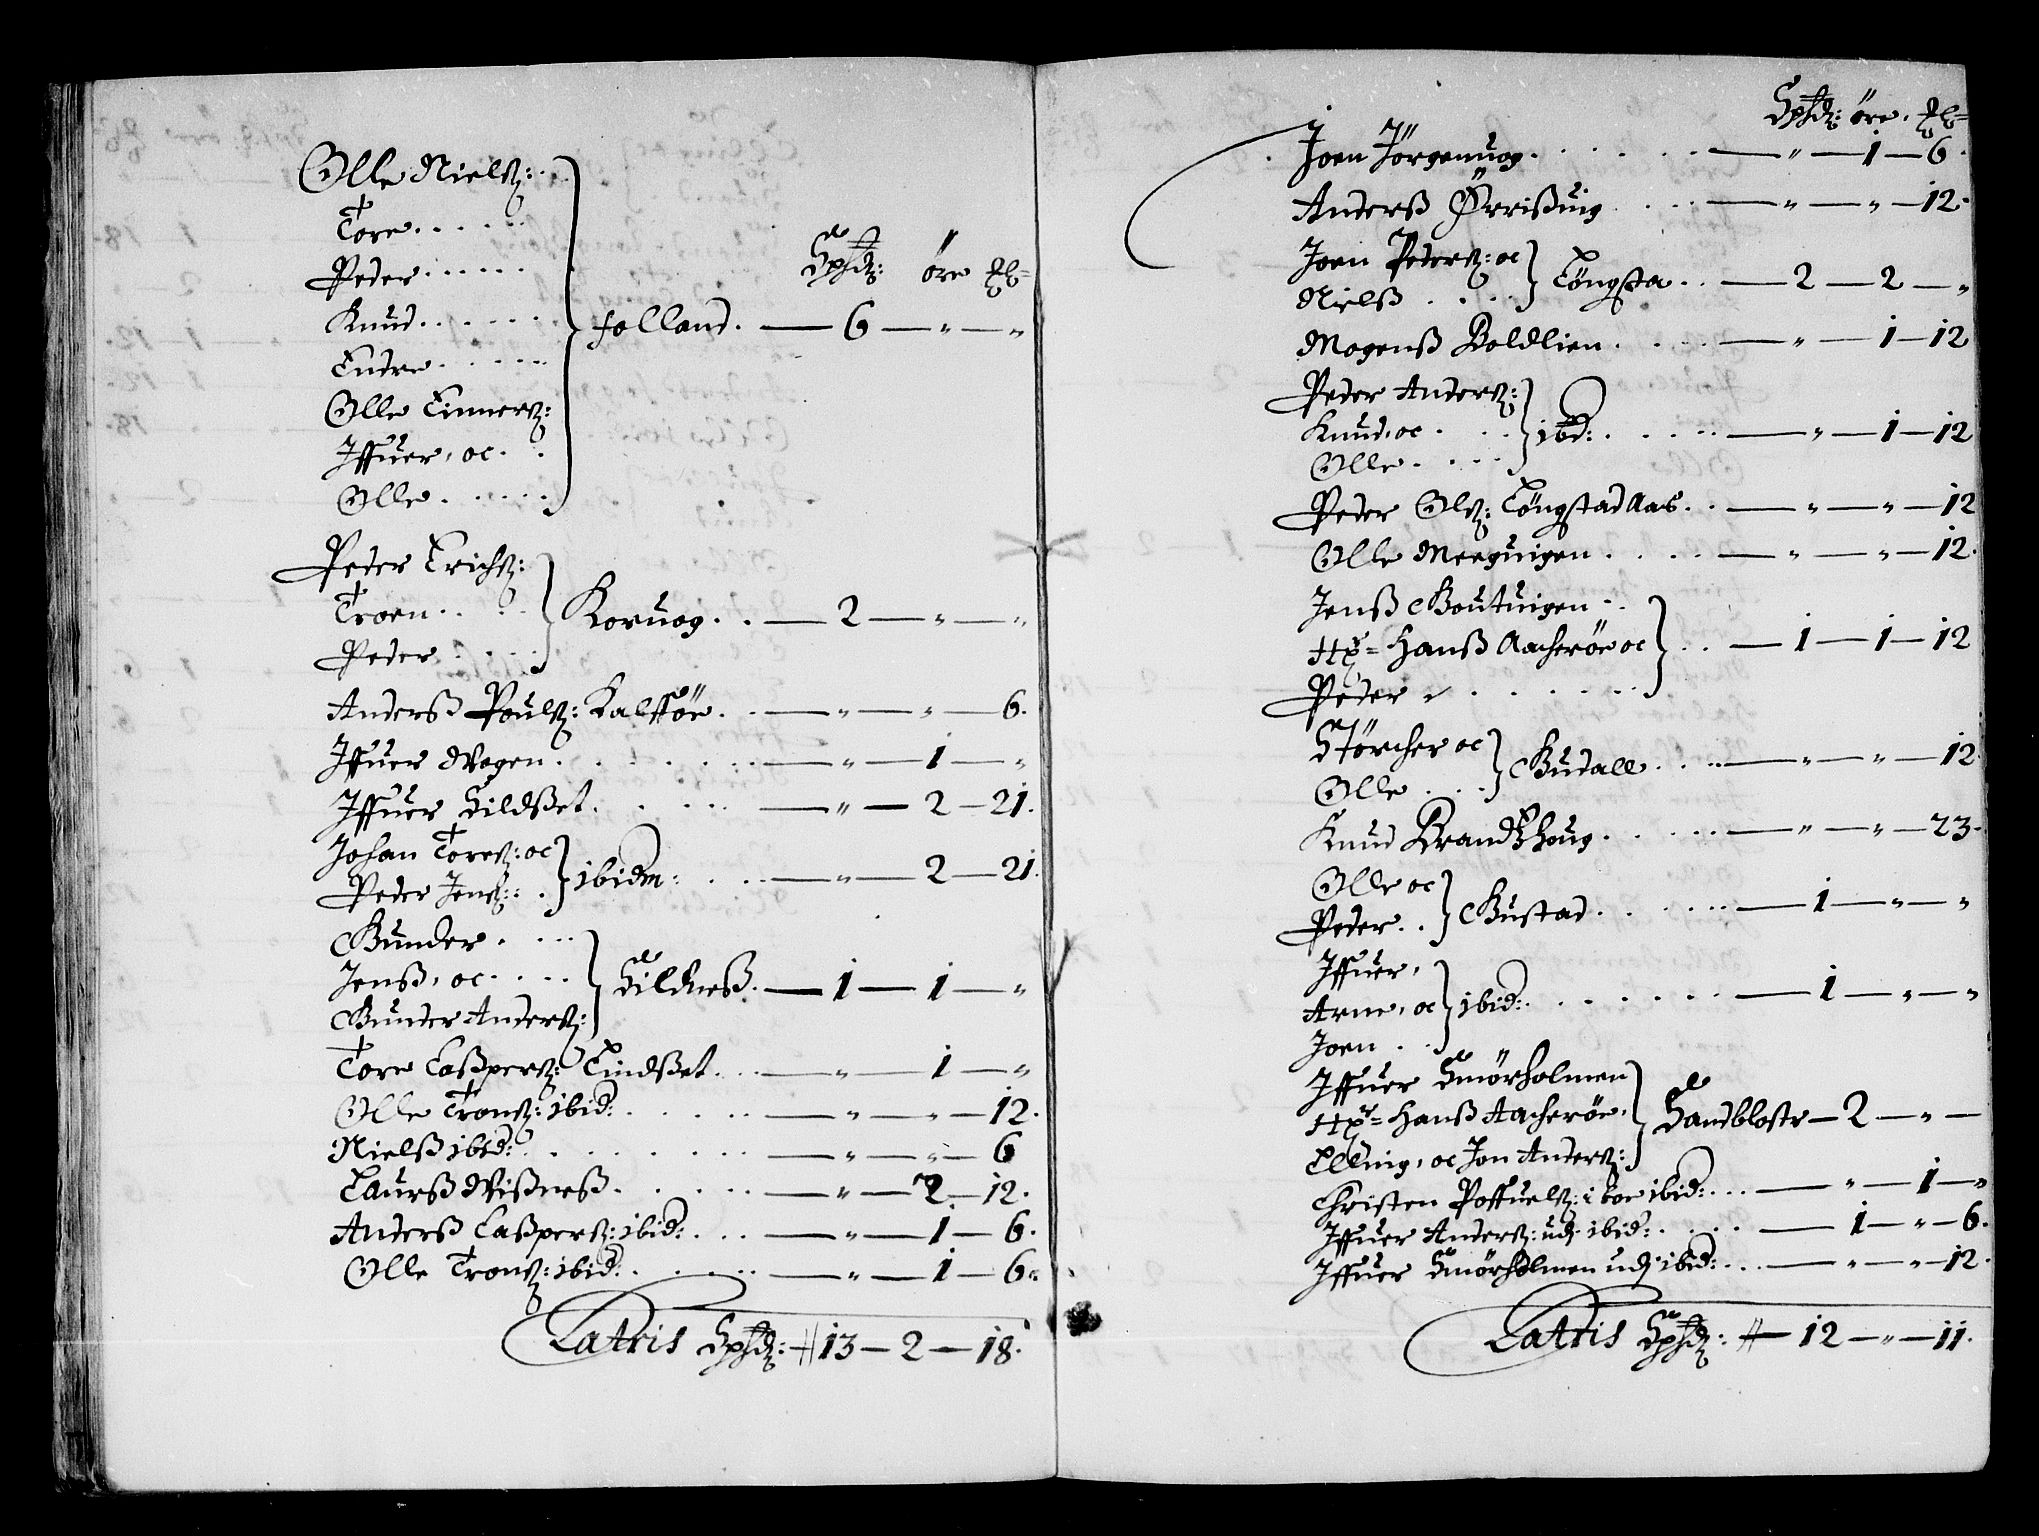 Spfd: öre ℔=
Olle Nielß: . .
Tore . . . . .
Peder . . . . . .
Knud . . . . . .
Endre . . . . . .
Olle Einnerß:
Iffuer, oc . .
Olle . . . . . .
Holland. — 6 — „ — „
Peder Erichß:
Troen . . . .
Peder . . . .
Koruog. . — 2 — „ — „
Anderß Poulß: Kalfföe . — „ — „ — 6.
Iffuer Wogen . . . . . . — „ — 1 — „
Iffuer Sildßet . . . . . — „ — 2 — 21.
Johan Toreß: oc
Peder Jenß: .
ibidm: . . . — „ — 2 — 21.
Gunder . . . .
Jenß, oc . . . .
Gunder Anderß:
Sildneß. — 1 — 1 — „
Tore Caßperß: Eindßet. . . — „ — 1 — „
Olle Tronß: ibid: . . . . — „ — „ — 12.
Nielß ibid: . . . . . . — „ — „ — 6
Laurß Wißneß. . . . . — „ — 2 — 12.
Anderß Caßperß: ibid: . . . — „ — 1 — 6.
Olle Tronß: ibid: . . . . . — „ — 1 — 6.
Latris Spfd: # 13 — 2 — 18.
Spfd: öre. ℔=
Joen Jörgenuog. . . . . . — „ — 1 — 6.
Anderß Örrißuig . . . — „ — „ — 12.
Joen Pederß: oc
Nielß . . . .
Töngsta . . — 2 — 2 — „
Mogenß Boldlien. . . . — „ — 1 — 12
Peder Anderß:
Knud, oc . . .
Olle . . . .
ibd: . . . . . — „ — 1 — 12
Peder Olß: Töngstad Aas. . . — „ — „ — 12
Olle Meeguigen . . . . — „ — „ — 12.
Jenß Goutuigen . .
Hr= Hanß Aacheröe oc
Peder . . . . . .
. . — 1 — 1 — 12
Störcher oc
Olle . . . .
Gudall . . . . — „ — „ — 12.
Knud Brandtzhoug . . . . . — „ — „ — 23.
Olle oc
Peder. .
Gustad . . . . . . — 1 — „ — „
Iffuer,
Arne, oc
Joen . .
ibid: . . . . . . — 1 — „ — „
Iffuer Smörholmen
Hr= Hanß Aacheröe,
Elling, oc Jon Anderß:
Sandblostr — 2 — „ —
Christen Poffuelß: i boe ibid: . . . — „ — 1 — „
Iffuer Anderß: udj ibid: . . . . — 1 — „ — 6.
Iffuer Smörholmen udj ibid: . . . — „ — „ — 12.
Latris Spfd: # — 12 — „ — 11.